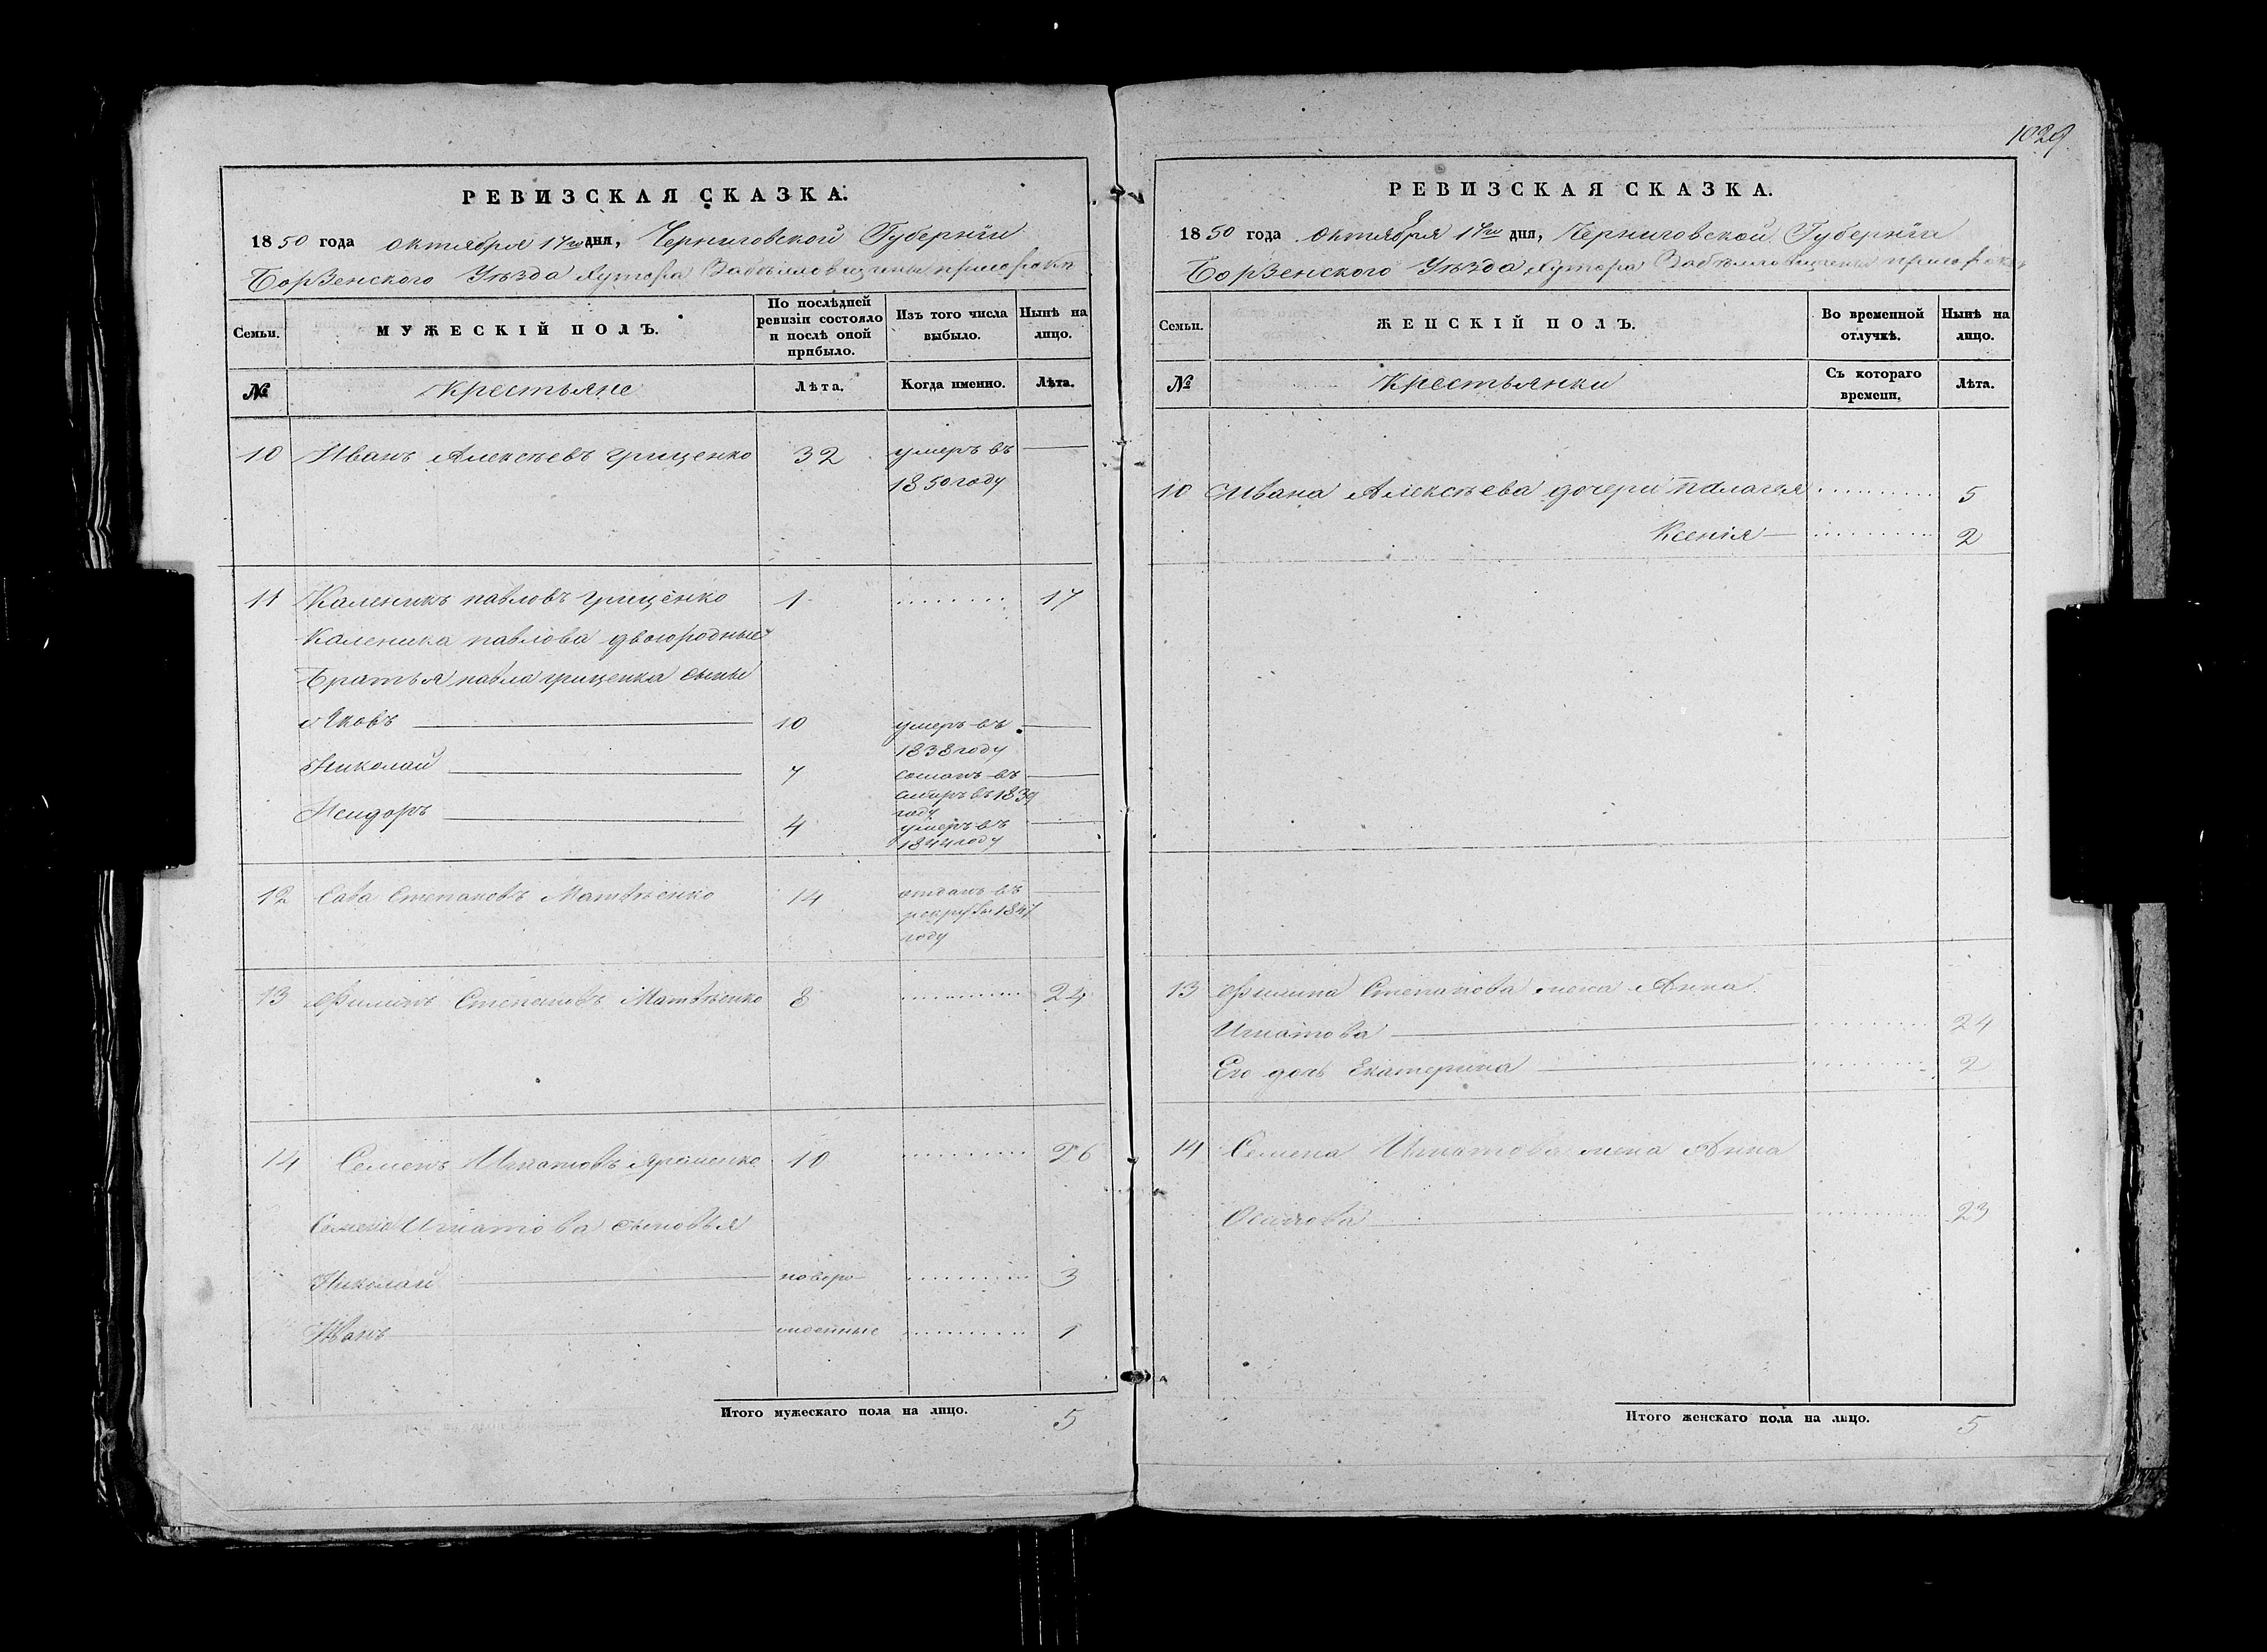 1029
РЕВИЗСКАЯ СКАЗКА.
1850 года октября 17го дня, Черниговской Губернїи
Борзенского Уѣзда Хутора
Семьи.
МУЖЕСКІЙ ПОЛЪ.
По послѣдней ревизіи состояло и послѣ оной прибыло.
Изъ того числа выбыло.
Нынѣ на лицо.
№
Крестьяне
Лѣта.
Когда именно.
Лѣта.
10 Иванъ Алексѣевъ Грищенко 32 умеръ въ
1850 году
11 Каленикъ павловъ Грищенко 1 17
Каленика павлова двоюродные
Братья павла грищенка сыны
Яковъ 10 умеръ въ
1838 году
Николай 7 въ
1839
году
Исидоръ 4 умеръ въ
1844 году
12 Сава Степановъ Матвѣенко 14 отданъ въ
рекруты 1847
году
13 Филипъ Степановъ Матвѣенко 8 24
14 Семенъ Игнатовъ Яременко 10 26
Семена Игнатова сыновья
Николай новоро- 3
Иванъ жденные 1
Итого мужескаго пола на лицо. 5
РЕВИЗСКАЯ СКАЗКА.
1850 года Октября 17го дня, Черниговской Губернїи
Борзенского Уѣзда Хутора
Семьи.
ЖЕНСКІЙ ПОЛЪ.
Во временной отлучкѣ.
Нынѣ на лицо.
№
Крестьянки
Съ котораго времени,
Лѣта.
10 Ивана Алексѣева дочери Палагея 5
Ксенія 2
13 Филипа Степанова жена Анна
Игнатова 24
Его дочь Екатерина 2
14 Семена Игнатова жена Анна
Осипова 23
Итого женскаго пола на лицо. 5